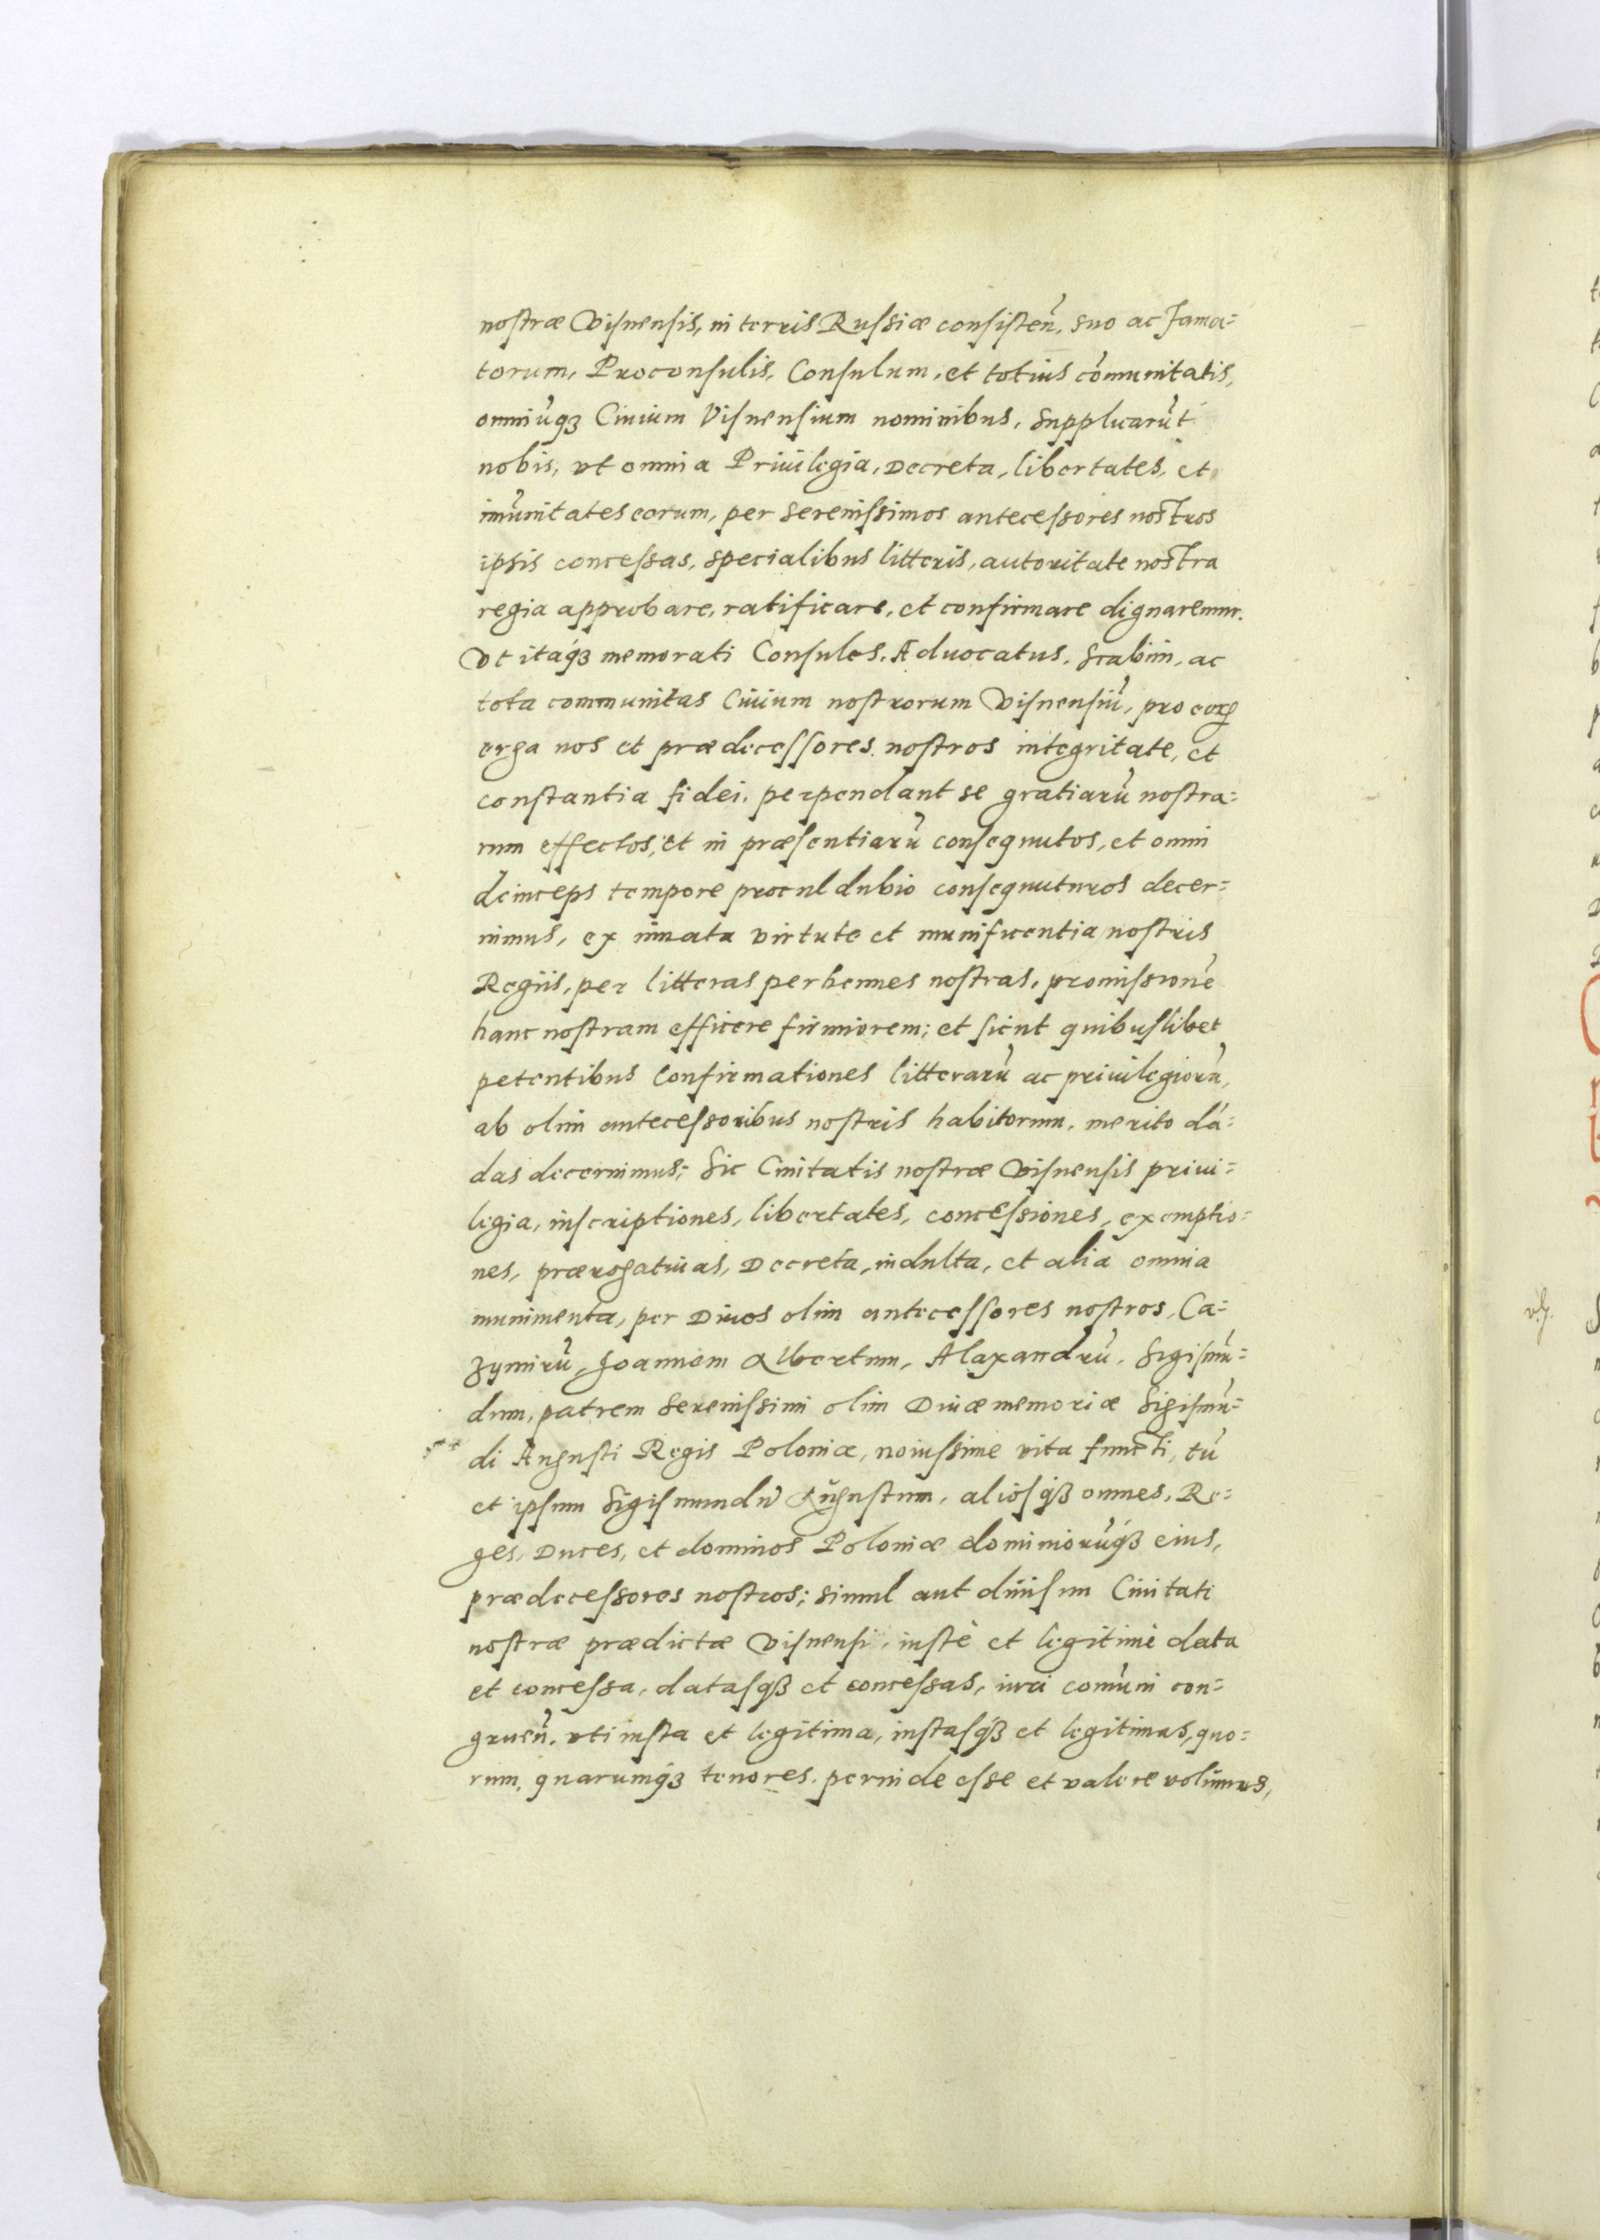 nostræ Visnensis, in terris Russiæ consisten̄, suo ac Fama-
torum, Proconsulis, Consulum, et totius com̄unitatis,
omniūq3 Ciuium Visnensium nominibus, supplicarūt
nobis, vt omnia Priuilegia, Decreta, libertates, et
im̄unitates eorum, per serenissimos antecessores nostros
ipsis concessas, specialibus litteris, autoritate nostra
regia approbare, ratificare, et confirmare dignaremur.
Vt itaq3 memorati Consules, Aduocatus, Scabini, ac
tota communitas Ciuium nostrorum Visnensiū, pro eorꝝ
erga nos et prædecessores nostros integritate, et
constantia fidei, perpendant se gratiarū nostra-
rum effectos, et in præsentiarū consequutos, et omni
deinceps tempore procul dubio consequuturos decer-
nimus, ex innata virtute et munificentia nostris
Regiis, per litteras perhennes nostras, promissionē
hanc nostram efficere firmiorem; et sicut quibuslibet
petentibus Confirmationes litterarū ac priuilegiorū,
ab olim antecessoribus nostris habitorum, merito dā-
das decernimus; Sic Ciuitatis nostræ Visnensis priui-
legia, inscriptiones, libertates, concessiones, exemptio-
nes, prærogatiuas, Decreta, indulta, et alia omnia
munimenta, per Diuos olim antecessores nostros, Ca-
zymirū, Joannem Albertum, Alaxandrū, Sigismū-
dum, patrem serenissimi olim Diuæ memoriæ Sigismū-
di Augusti Regis Poloniæ, nouissime vita functi, tū
et ipsum Sigismundū Augustum, aliosq3 omnes, Re-
ges, Duces, et dominos Poloniæ dominiorūq3 eius,
prædecessores nostros; simul aut diuisim Ciuitati
nostræ prædictæ Visnensi, iustè et legitimè data
et concessa, datasq3 et concessas, iuri com̄uni con-
gruen̄. vti iusta et legitima, iustasq3 et legitimas, quo-
rum, quarumq3 tenores, perinde esse et valere volumus,